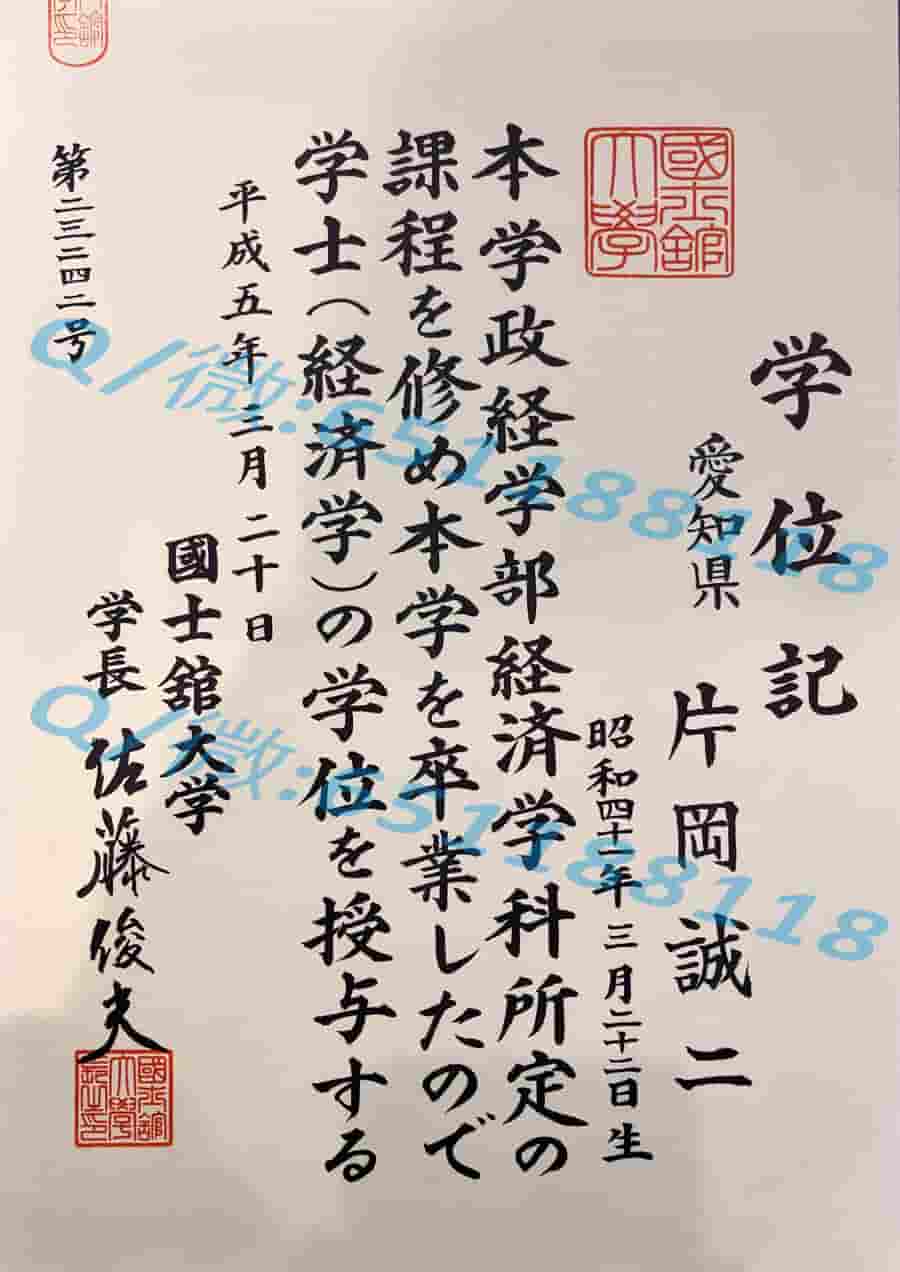 学位記
愛知県 片岡誠二
昭和四十一年三月二十二日生
國士舘大學
本学政経学部経済学科所定の
課程を修め本学を卒業したので
学士(経済学)の学位を授与する
平成五年三月二十日
國士舘大学
学長 佐藤俊夫
國士舘大學長之印
第二三二四二号
Q/微:651188118
Q/微:651188118